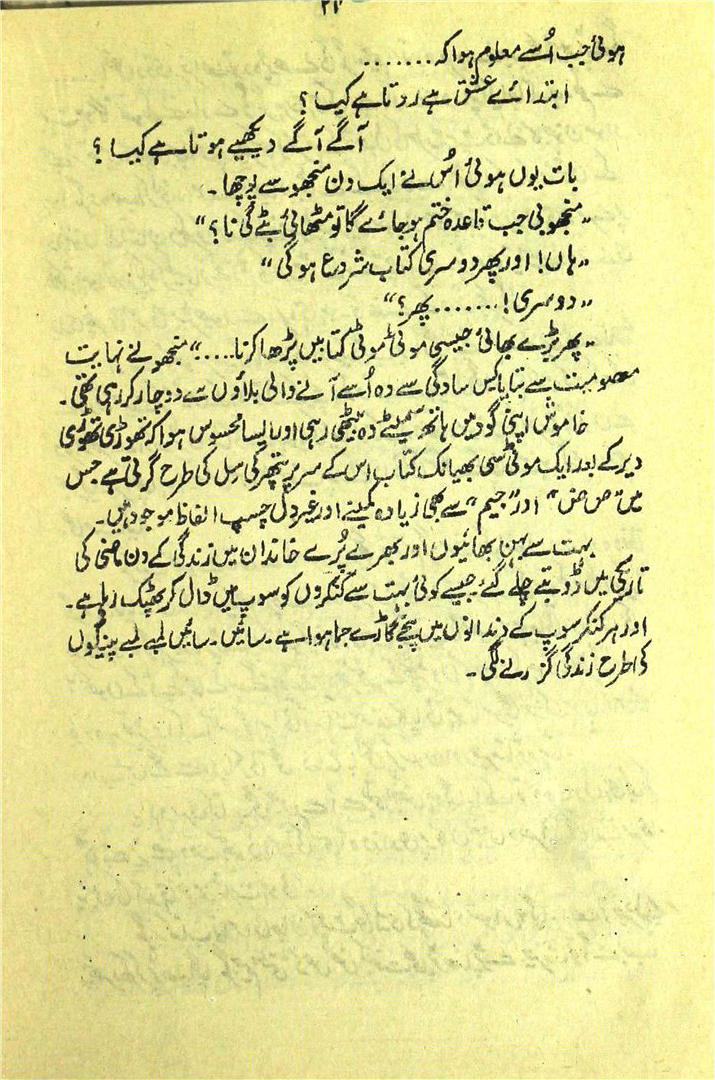 ہوئی جب اُسے معلوم ہوا کہ .......
ابتدائے عشق ہے روتا ہے کیا ؟
آگے آگے دیکھیے ہوتا ہے کیا ؟
بات یوں ہوئی اُس نے ایک دن منجھو سے پوچھا ۔
”منجھو بی جب قاعدہ ختم ہو جائے گا تو مٹھائی بٹے گی نا ؟“
”ہاں! اور پھر دوسری کتاب شروع ہوگی “
”دوسری! ....... پھر ؟“
”پھر بڑے بھائی جیسی موٹی موٹی کتابیں پڑھا کرنا ....“ منجھو نے نہایت
معصومیت سے بتایا کس سادگی سے وہ اُسے آنے والی بلاؤں سے دوچار کر رہی تھی ۔
خاموش اپنی گود میں ہاتھ سمیٹے وہ بیٹھی رہی اور ایسا محسوس ہوا کہ تھوڑی تھوڑی
دیر کے بعد ایک موٹی سی بھیانک کتاب اس کے سر پر پتھر کی سِل کی طرح گرتی ہے جس
میں ”ص ض“ اور ”جیم“ سے بھی زیادہ کمینے اور غیر دل چسپ الفاظ موجود ہیں ۔
بہت سے بہن بھائیوں اور بھرے پُرے خاندان میں زندگی کے دن ماضی کی
تاریکی میں ڈوبتے چلے گئے، جیسے کوئی بہت سے کنکروں کو سوپ میں ڈال کر پھٹک رہا ہے ۔
اور ہر کنکر سوپ کے دندانوں میں پنجے گاڑے جما ہوا ہے ۔ سائیں ۔ سائیں لمبے لمبے پینگوں
کی طرح زندگی گزرنے لگی ۔